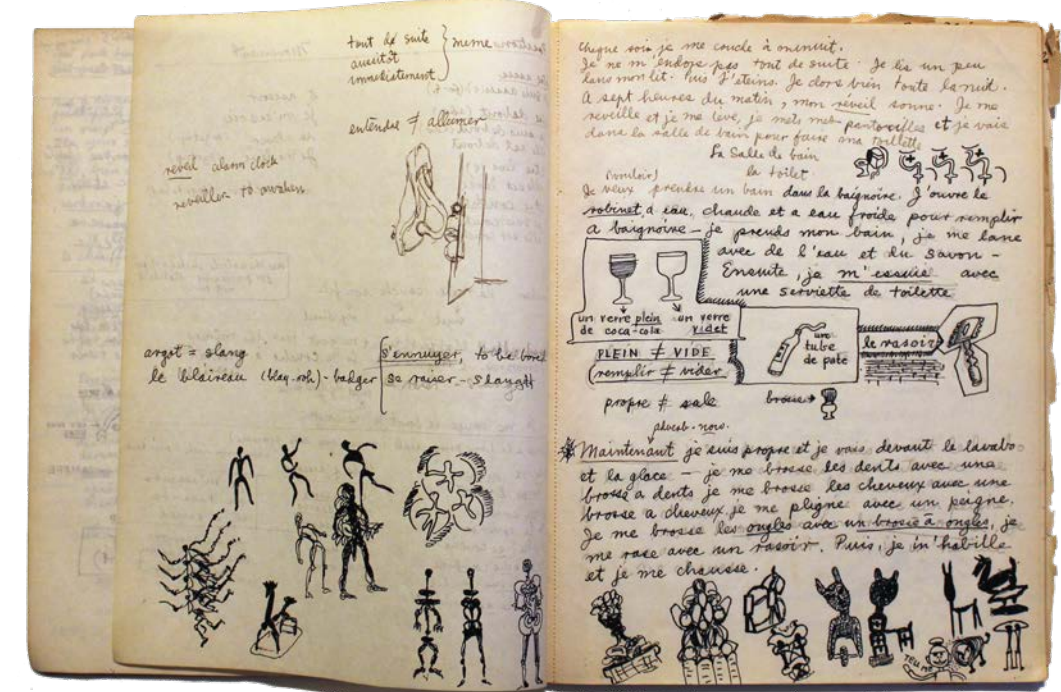 tout de suite
aussitôt
immediatement
meme
entendre ≠ allumer
réveil alarm clock
reveiller to awaken
argot = slang
le blaireau (blay-roh) - badger
s'ennuyer, to be bored
se raiser -
Chaque soir je me couche à menuit.
Je ne m'endors pas tout de suite. Je lis un peu
dans mon lit. Puis J'eteins. Je dors bien toute la nuit.
A sept heures du matin, mon réveil sonne. Je me
reveille et je me lève, je mets mes pantoufles et je vais
dans la salle de bain pour faire ma toillette
La Salle de bain
la toilet
(vouloir)
Je veux prendre un bain dans la baignoire. J'ouvre le
robinet a eau, chaude et a eau froide pour remplir
a baignoire – je prends mon bain, je me lave
avec de l'eau et du savon –
Ensuite, je m'essuie avec
une serviette de toilette
un verre plein
de coca-cola
un verre
videt
PLEIN ≠ VIDE
(remplir ≠ vider
propre ≠ sale
une
tube
de pate
le rasoir
brosse →
adverb. nows.
Maintenant je suis propre et je vais devant le lavabo
et la glace – je me brosse les dents avec une
brosse a dents je me brosse les cheveux avec une
brosse a cheveux, je me pligne avec un peigne.
Je me brosse les ongles avec un brosse à ongles, je
me rase avec un rasoir. Puis, je m'habille
et je me chausse.